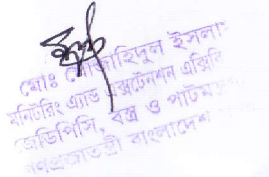 মোঃ মোজাহিদুল ইসলাম
মনিটরিং এ্যান্ড এক্সটেনশন এক্সিকি
জেডিপিসি, বস্ত্র ও পাট
গণপ্রজাতন্ত্রী বাংলাদেশ